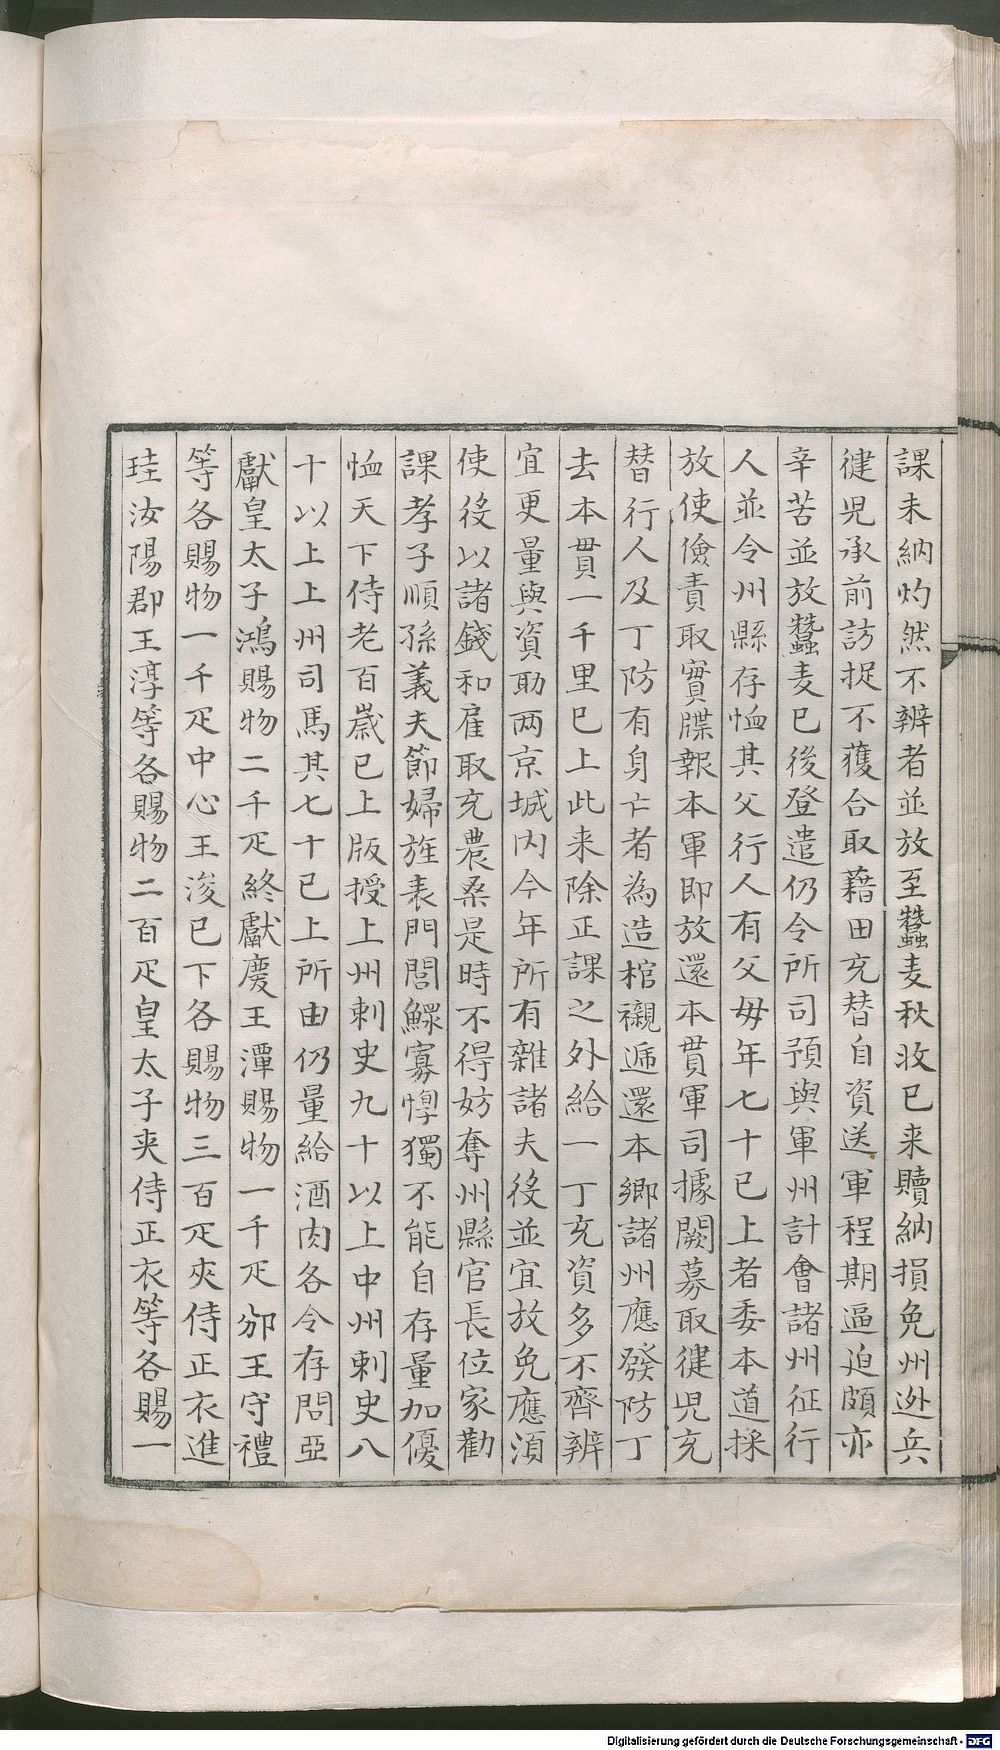 課未納灼然不辨者並放至蠶麦秋收已来贖納損免州逊兵
健児承前訪捉不獲合取藉田充替自資送軍程期逼迫頗亦
辛苦並放蠶麦已後登遣仍令所司預與軍州計會諸州征行
人並令州縣存恤其父行人有父母年七十已上者委本道採
放使儉責取實牒報本軍即放還本貫軍司據闕募取健児充
替行人及丁防有身亡者為造棺襯逓還本鄉諸州應發防丁
去本貫一千里已上此来除正課之外給一丁充資多不齊辨
宜更量與資助两京城内今年所有雜諸夫役並宜放免應湏
使役以諸錢和雇取充農桑是時不得妨奪州縣官長位家勸
課孝子順孫義夫節婦旌表門閭鰥寡惸獨不能自存量加優
恤天下侍老百歲已上版授上州刺史九十以上中州刺史八
十以上上州司馬其七十已上所由仍量給酒肉各令存問亞
獻皇太子鴻賜物二千疋終獻慶王潭賜物一千疋邠王守禮
等各賜物一千疋中心王浚已下各賜物三百疋夾侍正衣進
珪汝陽郡王淳等各賜物二百疋皇太子夾侍正衣等各賜一
Digitalisierung gefördert durch die Deutsche Forschungsgemeinschaft - DFG